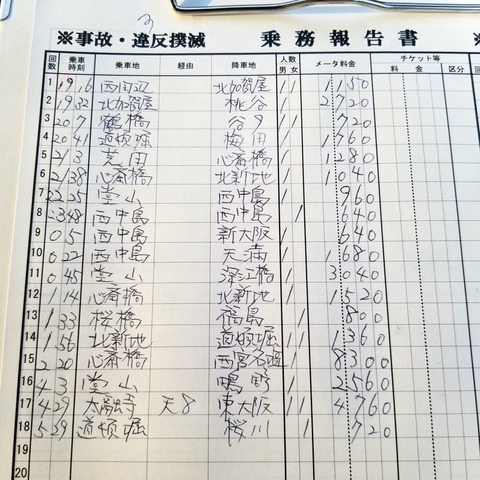 3
※事故・違反撲滅 乗務報告書 ※
回数 乗車時刻 乗車地 経由 降車地 人数 男 女 メータ料金 チケット等 料金 区分 回
1 19 16 西田辺 北加賀屋 1 1 1150
2 19 32 北加賀屋 桃谷 1 1 2720
3 20 7 鶴橋 谷9 1 1 720
4 20 41 道頓堀 梅田 1 1760
5 21 3 芝田 心斎橋 1 1 1280
6 21 38 心斎橋 北新地 1 1040
7 22 25 堂山 西中島 1 960
8 23 48 西中島 西中島 1 640
9 0 5 西中島 新大阪 1 640
10 0 22 西中島 天満 1 1 1680
11 0 45 堂山 深江橋 1 3040
12 1 14 心斎橋 北新地 1 1520
13 1 33 桜橋 福島 1 800
14 1 56 北新地 道頓堀 1 1 1360
15 2 20 心斎橋 西宮名塩 1 8300
16 4 3 堂山 鴫野 1 2560
17 4 29 太融寺 天8 東大阪 1 1 4760
18 5 29 道頓堀 桜川 1 720
19
20